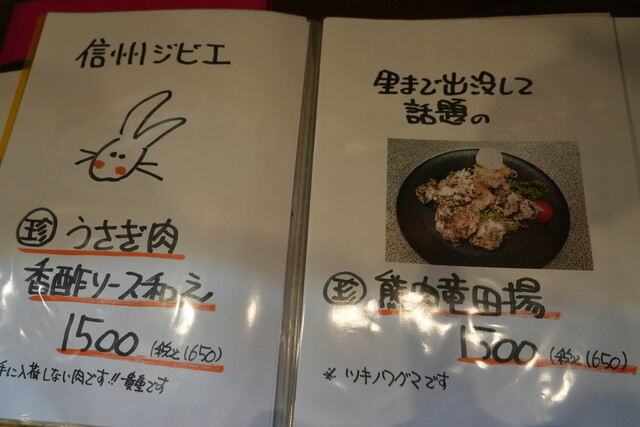 信州ジビエ
珍 うさぎ肉
香酢ソース和え
1500 (税込1650)
手に入荷しない肉です!! 貴重です
里まで出没して
話題の
珍 熊肉竜田揚
1500 (税込1650)
※ ツキノワグマです